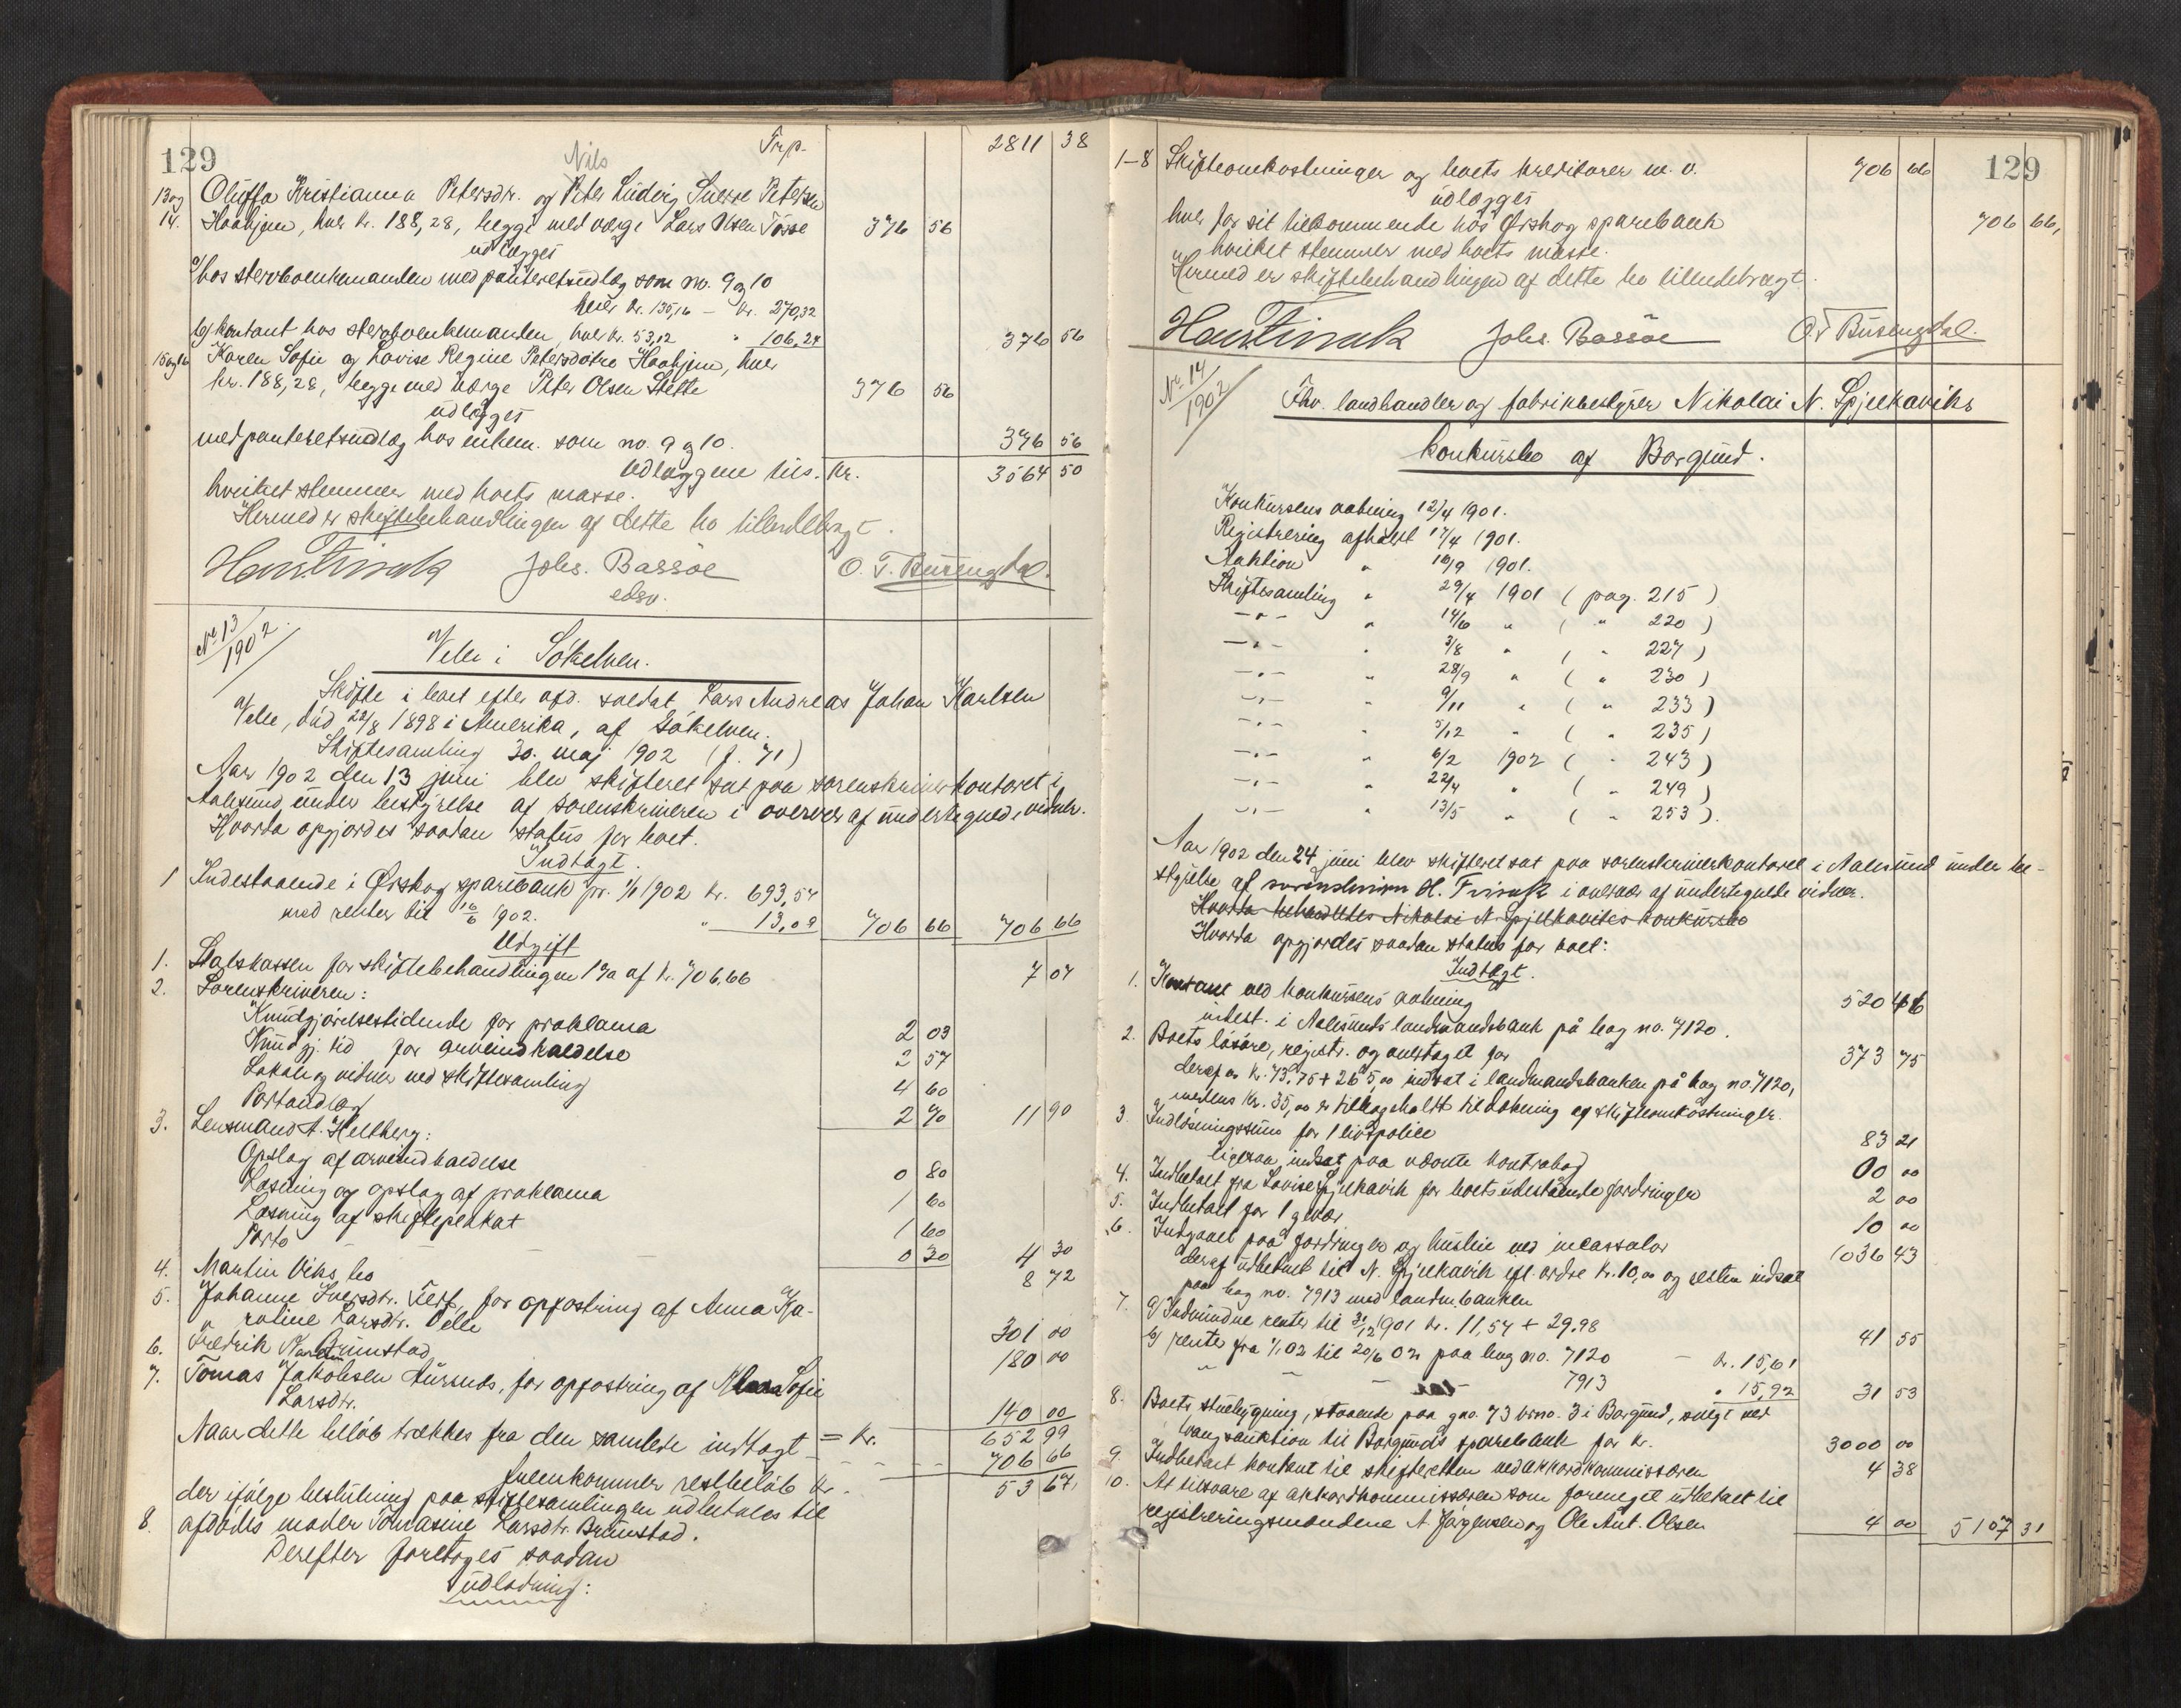 129
Trp. 2811 38
Nils
13 og Oluffa Kristianna Petersdtr. og Peter Ludvig Sverre Petersen
14. Haahjem, hver kr. 188,28, begge med værge Lars Olsen Tösse 376 56
udlægges
a/ hos stervboenkemanden med panteretsudlæg som no. 9 og 10
hver kr. 135,16 — kr. 270,32
b/ kontant hos stervboenkemanden, hver kr. 53,12 " 106,24 376 56
15 og 16 Karen Sofie og Lovise Regine Petersdötre Haahjem, hver
kr. 188,28, begge med værge Peter Olsen Stette 376 56
udlægges
med panteretsudlæg hos enkem. som no. 9 og 10. 376 56
Udlæggene tils. kr. 3564 50
hvilket stemmer med boets masse.
Hermed er skiftebehandlingen af dette bo tilendebragt.
Hans Finsak Johs. Bassöe O. T. Busengdal.
edsv.
No 13/1902
Velle i Sökelven.
Skifte i boet efter afd. soldat Lars Andreas Johan Karlsen
Velle, död 22/8 1898 i Amerika, af Sökelven.
Skiftesamling 30. maj 1902 (f. 71)
Aar 1902 den 13 juni blev skifteret sat paa sorenskriverkontoret i
Aalesund under bestyrelse af sorenskriveren i overvær af undertegnede vidner.
Hvorda opgjordes saadan status for boet.
Indtægt.
1 Indestaaende i Ørskog sparebank pr. 1/1 1902 kr. 693,57
med renter til 16/6 1902. " 13,09 706 66 706 66
Udgift
1. Statskassen for skiftebehandlingen 1 % af kr. 706,66 7 07
2. Sorenskriveren:
Kundgjörelsestidende for proklama 2 03
Kundgj. tid for arveindkaldelse 2 57
Lokale og vidner ved skiftesamling 4 60
Portoudlæg 2 70 11 90
3. Lensmand A. Hellberg:
Opslag af arveindkaldelse 0 80
Læsning og opslag af proklama 1 60
Læsning af skifteplakat 1 60
Porto 0 30 4 30
4. Martin Viks bo 8 72
5. Johanne Iversdtr. for opfostring af Anna Ka-
roline Larsdtr. Velle 301 00
6. Fredrik Brunstad 180 00
7. Tomas Jakobsen Aursnes, for opfostring af Sofie
Larsdtr. 140 00
= kr. 652 99
Naar dette belöb trækkes fra den samlede indtægt 706 66
fremkommer restbelöb kr. 53 67,
der ifölge beslutning paa skiftesamlingen udbetales til
8. afdödes moder Tomasine Larsdtr. Brunstad.
Derefter foretages saadan
udlodning:
129
1–8 Skifteomkostninger og boets kreditorer m. v. 706 66
udlægges
hver for sit tilkommende hos Ørskog sparebank 706 66,
hvilket stemmer med boets masse.
Hermed er skiftebehandlingen af dette bo tilendebragt.
Hans Finsak Johs. Bassöe O. T. Busengdal.
No 14/1902
Fhv. landhandler og fabrikbestyrer Nikolai N. Spjelkaviks
konkursbo af Borgund.
Konkursens aabning 12/4 1901.
Registrering afholdt 17/4 1901.
Auktion " 10/9 1901.
Skiftesamling " 29/4 1901 (pag. 215)
—"— " 14/6 " ( " 220)
—"— " 3/8 " ( " 227)
—"— " 28/9 " ( " 230)
—"— " 9/11 " ( " 233)
—"— " 5/12 " ( " 235)
—"— " 6/2 1902 ( " 243)
—"— " 22/4 " ( " 249)
—"— " 13/5 " ( " 253).
Aar 1902 den 24 juni blev skifteret sat paa sorenskriverkontoret i Aalesund under be-
styrelse af sorenskriver H. Finsak i overvær af undertegnede vidner.
Hvorda behandledes Nikolai N. Spjelkaviks konkursbo
Hvorda opgjordes saadan status for boet:
Indtægt.
1. Kontant ved konkursens aabning 520 46
indest. i Aalesunds landmandsbank på bog no. 7120.
2. Boets lösöre, registr. og overtaget for 373 75
deraf er kr. 73,75 + 265,00 indsat i landmandsbanken på bog no. 7120,
medens kr. 35,00 er tilbageholdt til dækning af skifteomkostninger.
3 Indlösningssum for 1 livspolice 83 21
ligesaa indsat paa nævnte kontrabog
4. Indbetalt fra Lovise Spjelkavik for boets udestående fordringer 00 00
5. Indbetalt for 1 gevær 2 00
10 00
6. Indgaaet paa fordringer og husleie ved incassator 1036 43
deraf udbetalt til N. Spjelkavik efl. ordre kr. 10,00 og resten indsat
paa bog no. 7913 med landm.banken
7. a/ Indvundne renter til 31/12 1901 kr. 11,57 + 29.98 41 55
b/ rente fra 1/1 02 til 20/6 02 paa bog no. 7120 — kr. 15,61
" — — 7913 " 15,92 31 53
8. Boets stuebygning, staaende paa gno. 73 brno. 3 i Borgund, solgt ved
tvangsauktion til Borgunds sparebank for kr. 3000 00
9. Indbetalt kontant til skifteretten ved akkordkommissæren 4 38
10. At tilsvare af akkordkommissæren som formeget udbetalt til
registreringsmændene A. Jörgensen og Ole Ant. Olsen 4 00 5107 31